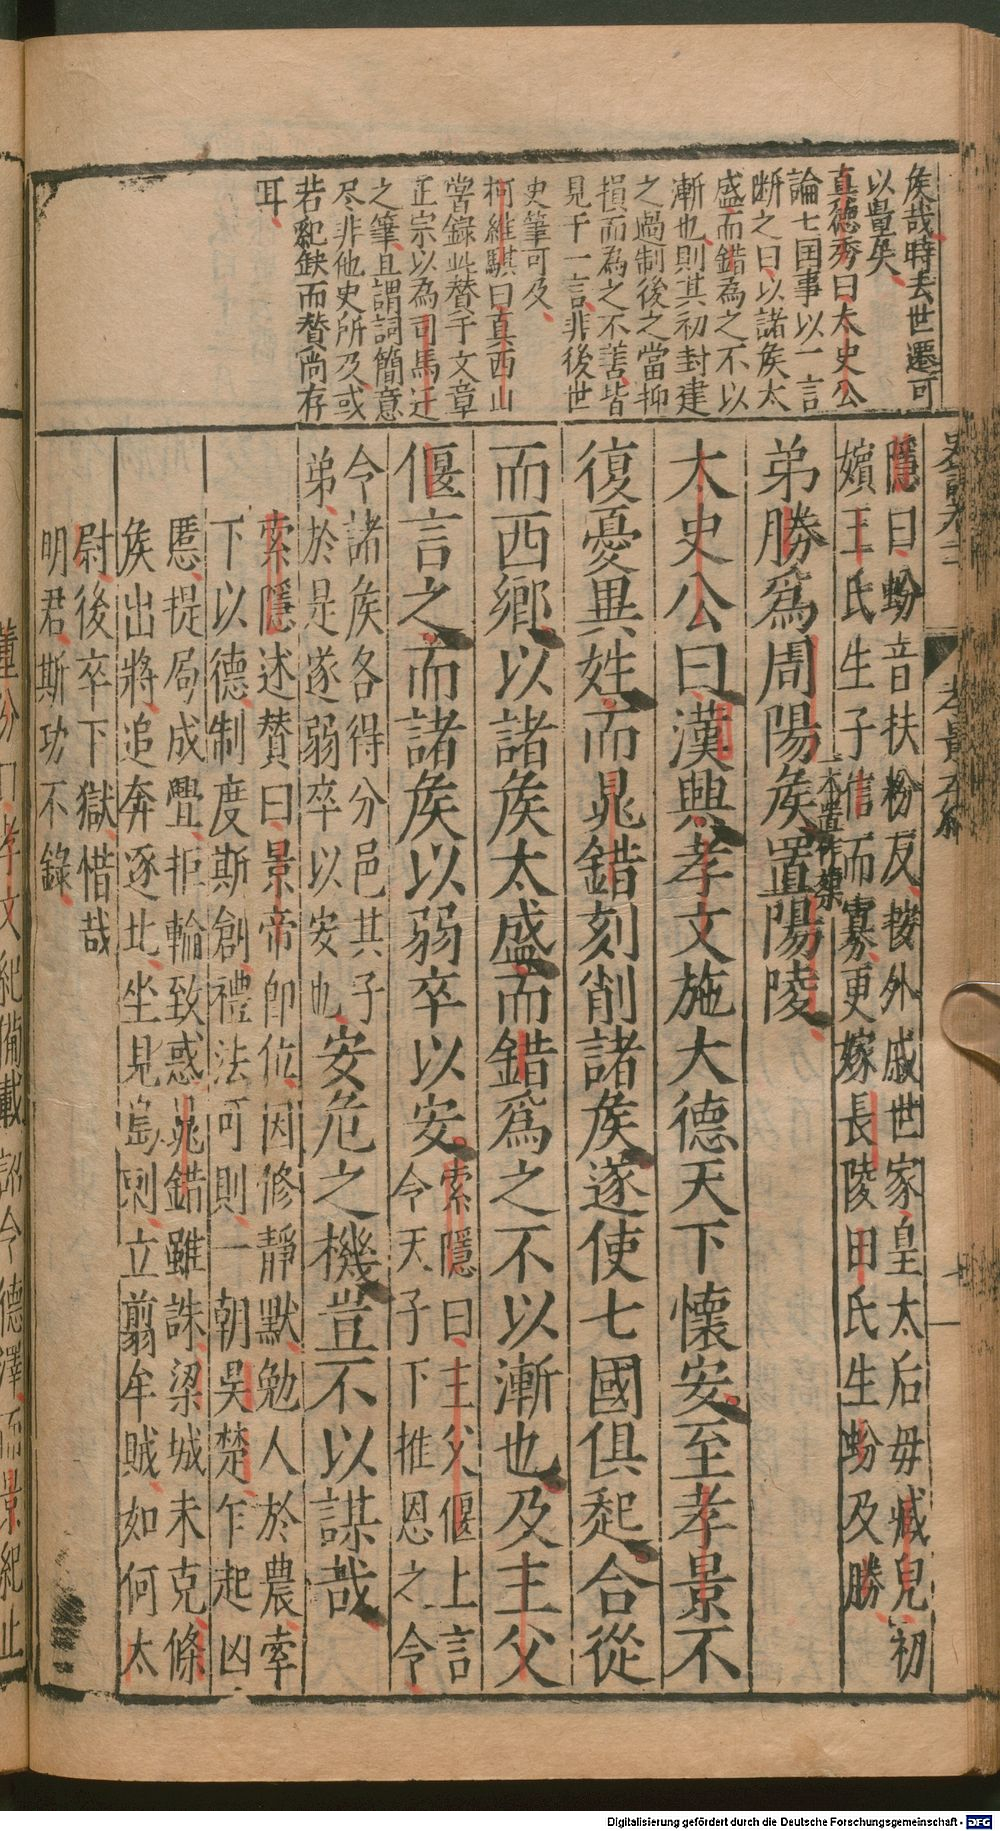 矦哉時去世遷可
以量矣
真德秀曰太史公
論七国事以一言
断之曰以諸矦太
盛而錯為之不以
漸也則其初封建
之過制後之當抑
損而為之不善皆
見于一言非後世
史筆可及
柯維騏曰真西山
嘗録此賛于文章
正宗以為司馬迁
之筆且謂詞簡意
尽非他史所及或
若紀缺而賛尚存
耳
隱曰蚡音扶粉反按外戚世家皇太后毋臧兒初
嬪王氏生子信而寡更嫁長陵田氏生蚡及勝
弟勝爲周陽矦置陽陵
一本置作葬
太史公曰漢興孝文施大德天下懷安至孝景不
復憂異姓而晁錯刻削諸矦遂使七國俱起合從
而西鄉以諸矦太盛而錯爲之不以漸也及主父
偃言之而諸矦以弱卒以安
索隱曰主父偃上言
今天子下推恩之令
令諸矦各得分邑其子
弟於是遂弱卒以安也
安危之機豈不以謀哉
索隱述賛曰景帝卽位因修靜默勉人於農率
下以德制度斯創禮法可則一朝吳楚乍起凶
慝提局成釁拒輪致惑晁錯雖誅梁城未克條
矦出將追奔逐北坐見梟㓨立翦牟賊如何太
尉後卒下獄惜哉
明君斯功不錄
史記卷十一
孝景本紀
董份曰孝文紀備載詔令德澤而景紀止
Digitalisierung gefördert durch die Deutsche Forschungsgemeinschaft - DFG